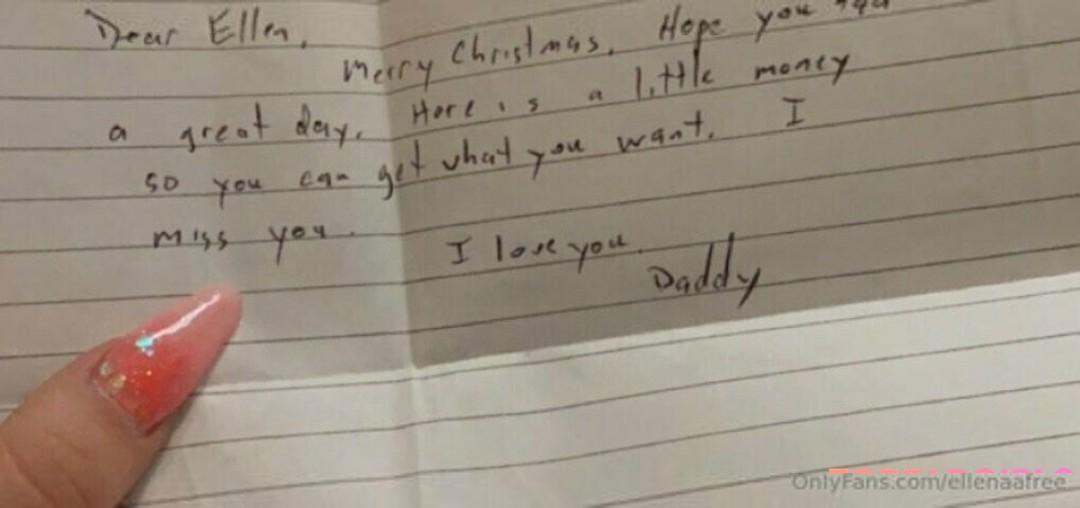 Dear Ellen,
Merry Christmas. Hope you had
a great day. Here is a little money
so you can get what you want. I
miss you.
I love you.
Daddy
OnlyFans.com/ellenaafree